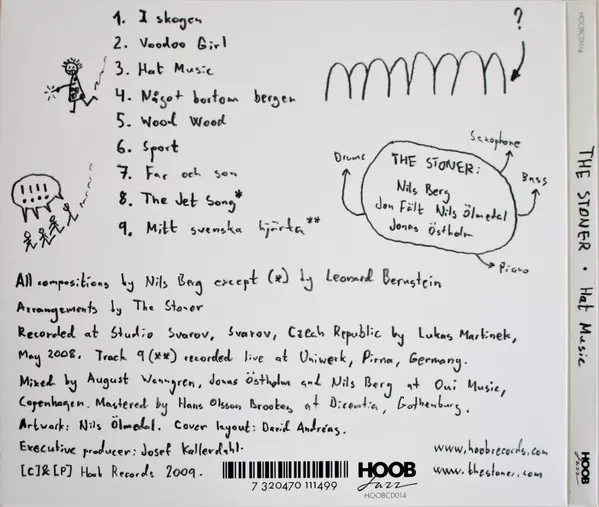 1. I skogen
2. Voodoo Girl
3. Hat Music
4. Något bortom bergen
5. Wood Wood
6. Sport
7. Far och son
8. The Jet Song*
9. Mitt svenska hjärta**
?
!!!!
THE STONER:
Nils Berg
Jon Fält Nils Ölmedal
Jonas Östholm
Drums
Saxophone
Bass
Piano
All compositions by Nils Berg except (*) by Leonard Bernstein
Arrangements by The Stoner
Recorded at Studio Svarov, Svarov, Czech Republic by Lukas Martinek,
May 2008. Track 9(**) recorded live at Uniwerk, Pirna, Germany.
Mixed by August Wanngren, Jonas Östholm and Nils Berg at Oui Music,
Copenhagen. Mastered by Hans Olsson Brookes, at Dicentia, Gothenburg.
Artwork: Nils Ölmedal. Cover layout: David Andréas.
Executive producer: Josef Kallerdahl.
[C]&[P] Hoob Records 2009.
7 320470 111499
HOOB
Jazz
HOOBCD014
www.hoobrecords.com
www.thestoner.com
HOOBCD014
THE STONER • Hat Music
HOOB
Jazz